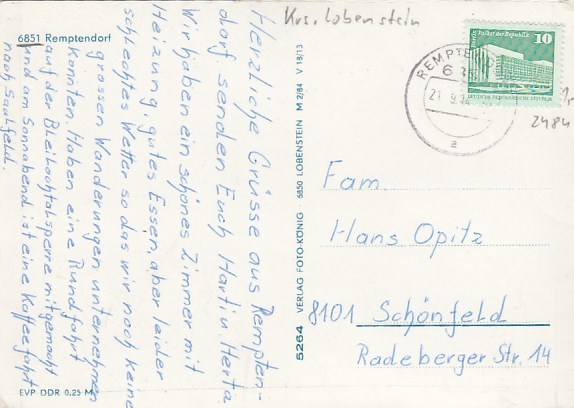 6851 Remptendorf
Krs. Lobenstein
Herzliche Grüsse aus Rempten-
dorf senden Euch Hart u. Herta
Wir haben ein schönes Zimmer mit
Heizung, gutes Essen, aber leider
schlechtes Wetter so das wir noch keine
grossen Wanderungen unternehmen
konnten. Haben eine Rundfahrt
auf der Bleilochtalsperre mitgemacht
und am Sonnabend ist eine Kaffeefahrt
nach Saalfeld.
EVP DDR 0.25 M
5264 VERLAG FOTO-KÖNIG 6850 LOBENSTEIN M 2/84 V 18/13
Palast der Republik 10
REMPTEN
21.9.
a
2484
Fam.
Hans Opitz
8101 Schönfeld
Radeberger Str. 14